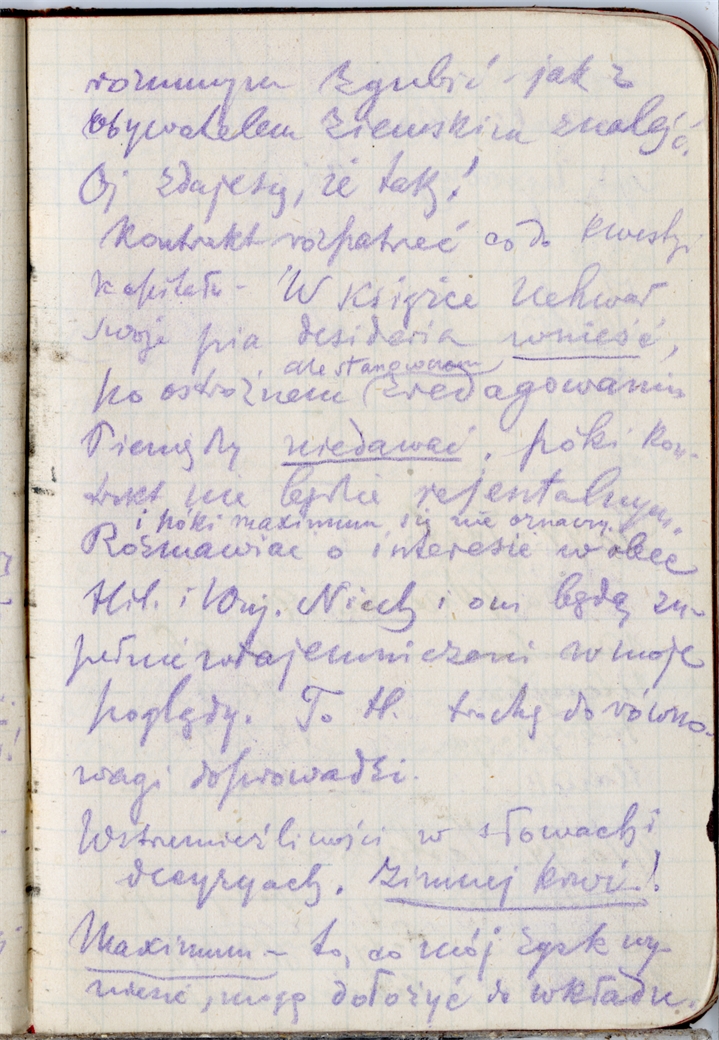 rozumnym zgubić – jak z
obywatelem ziemskim znaleść.
Oj zdajesię, że tak!
Kontrakt rozpatrzeć co do kwestyi
kapitału – W książce Uchwał
swoje pia desideria wnieść,
ale stanowczem
po ostrożnem zredagowaniu
Pieniędzy niedawać, póki kon-
trakt nie będzie rejentalnym,
i póki maximum się nie oznaczy.
Rozmawiać o interesie wobec
Hil. i Niech i oni będą zu-
pełnie wtajemniczeni w moje
poglądy. To H. trochę do równo-
wagi doprowadzi.
Wstrzemięźliwości w słowach i
decyzyach. Zimnej krwi!
Maximum – to, co mój zysk wy-
niesie, mogę dołożyć do wkładu.